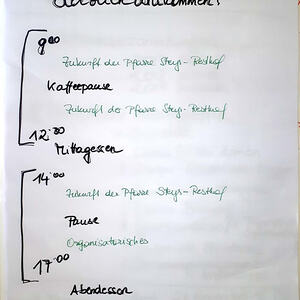 Herzlich willkommen!
9:00
Zukunft der Pfarre Steyr-Resthof
Kaffeepause
Zukunft der Pfarre Steyr-Resthof
12:30
Mittagessen
14:00
Zukunft der Pfarre Steyr-Resthof
Pause
Organisatorisches
17:00
Abendessen